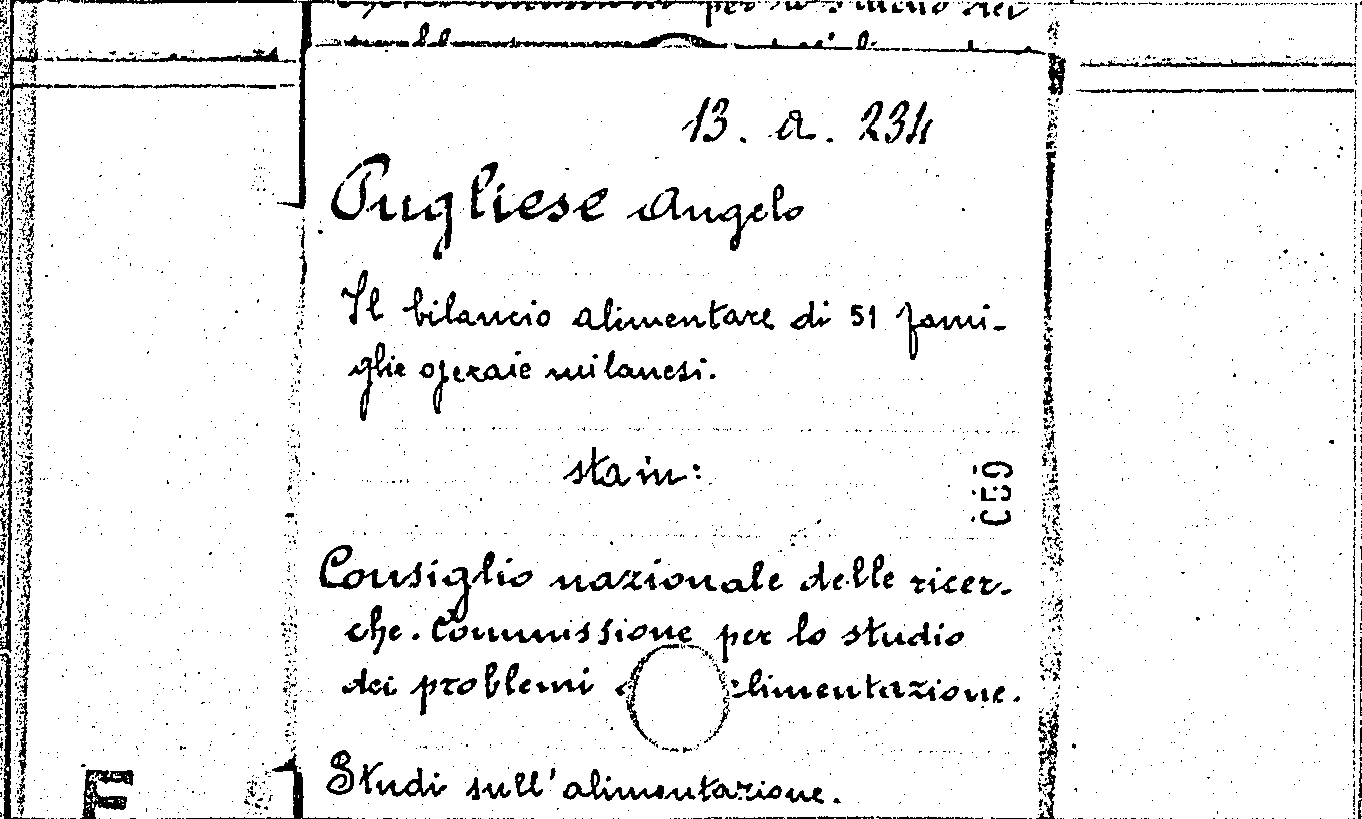 per lo studio dei
13. a. 234
Pugliese Angelo
Il bilancio alimentare di 51 fami-
glie operaie milanesi.
sta in:
Consiglio nazionale delle ricer-
che. Commissione per lo studio
dei problemi alimentazione.
Studi sull'alimentazione.
E